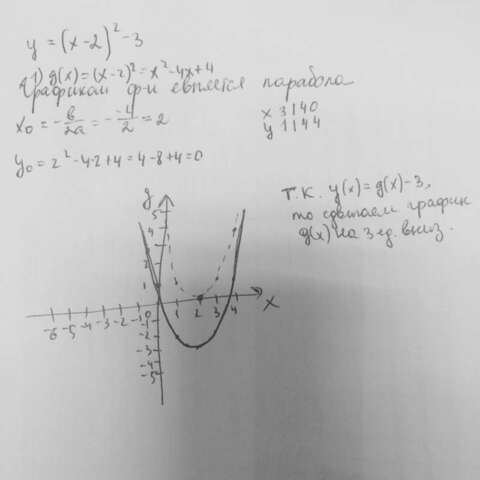 y = (x-2)² -3
1) g(x) = (x-2)² = x² -4x+4
Графиком ф-и является парабола
x₀ = -b/2a = - -4/2 = 2
x 3 1 4 0
y 1 1 4 4
y₀ = 2² -4·2+4 = 4-8+4=0
Т.К. y(x) = g(x)-3,
то сдвигаем график
g(x) на 3 ед. вниз.
y
5
4
3
2
1
-6 -5 -4 -3 -2 -1 0 1 2 3 4 x
-1
-2
-3
-4
-5